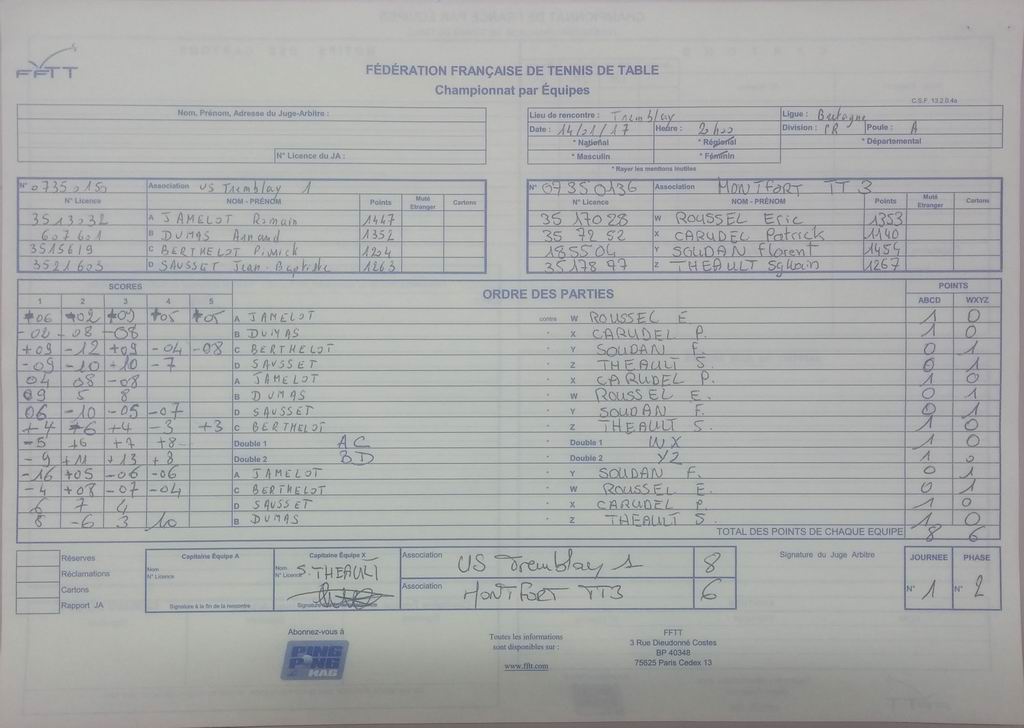 FFTT
FÉDÉRATION FRANÇAISE DE TENNIS DE TABLE
Championnat par Équipes
C.S.F. 13.2.0.4a
Nom, Prénom, Adresse du Juge-Arbitre :
N° Licence du JA :
Lieu de rencontre : Tremblay Ligue : Bretagne
Date : 14/01/17 Heure : 20h00 Division : PR Poule : A
* National * Régional * Départemental
* Masculin * Féminin
* Rayer les mentions inutiles
N° 0735015 Association US Tremblay 1
N° Licence NOM - PRÉNOM Points Muté Etranger Cartons
3513032 A JAMELOT Romain 1447
607601 B DUMAS Arnaud 1352
3515619 C BERTHELOT 1204
3521603 D SAUSSET Jean-Baptiste 1263
N° 07350136 Association MONTFORT TT 3
N° Licence NOM - PRÉNOM Points Muté Etranger Cartons
35 17028 W ROUSSEL Eric 1353
35 7252 X CARUDEL Patrick 1140
185504 Y SOUDAN Florent 1454
35178 97 Z THEAULT Sylvain 1267
SCORES ORDRE DES PARTIES POINTS
1 2 3 4 5 ABCD WXYZ
06 02 09 05 05 A JAMELOT contre W ROUSSEL E. 1 0
-02 -08 -08 B DUMAS X CARUDEL P. 1 0
+09 -12 +09 -04 -08 C BERTHELOT Y SOUDAN F. 0 1
-09 -10 +10 -7 D SAUSSET Z THEAULT S. 0 1
04 08 -08 A JAMELOT X CARUDEL P. 1 0
09 5 8 B DUMAS W ROUSSEL E. 0 1
06 -10 -05 -07 D SAUSSET Y SOUDAN F. 0 1
+4 -6 +4 -3 +3 C BERTHELOT Z THEAULT S. 1 0
-5 +6 +7 +8 Double 1 AC Double 1 WX 1 0
-9 +11 +13 +8 Double 2 BD Double 2 YZ 1 0
-16 +05 -06 -06 A JAMELOT Y SOUDAN F. 0 1
-4 +08 -07 -04 C BERTHELOT W ROUSSEL E. 0 1
6 7 4 D SAUSSET X CARUDEL P. 1 0
8 -6 3 10 B DUMAS Z THEAULT S. 1 0
TOTAL DES POINTS DE CHAQUE EQUIPE 8 6
Réserves
Réclamations
Cartons
Rapport JA
Capitaine Équipe A
Nom
N° Licence
Signature à la fin de la rencontre
Capitaine Équipe X
Nom S. THEAULT
N° Licence
Association US Tremblay 1 8
Association MONTFORT TT3 6
Signature du Juge Arbitre
JOURNEE PHASE
N° 1 N° 2
Abonnez-vous à
PING PONG MAG
Toutes les informations
sont disponibles sur :
www.fftt.com
FFTT
3 Rue Dieudonné Costes
BP 40348
75625 Paris Cedex 13